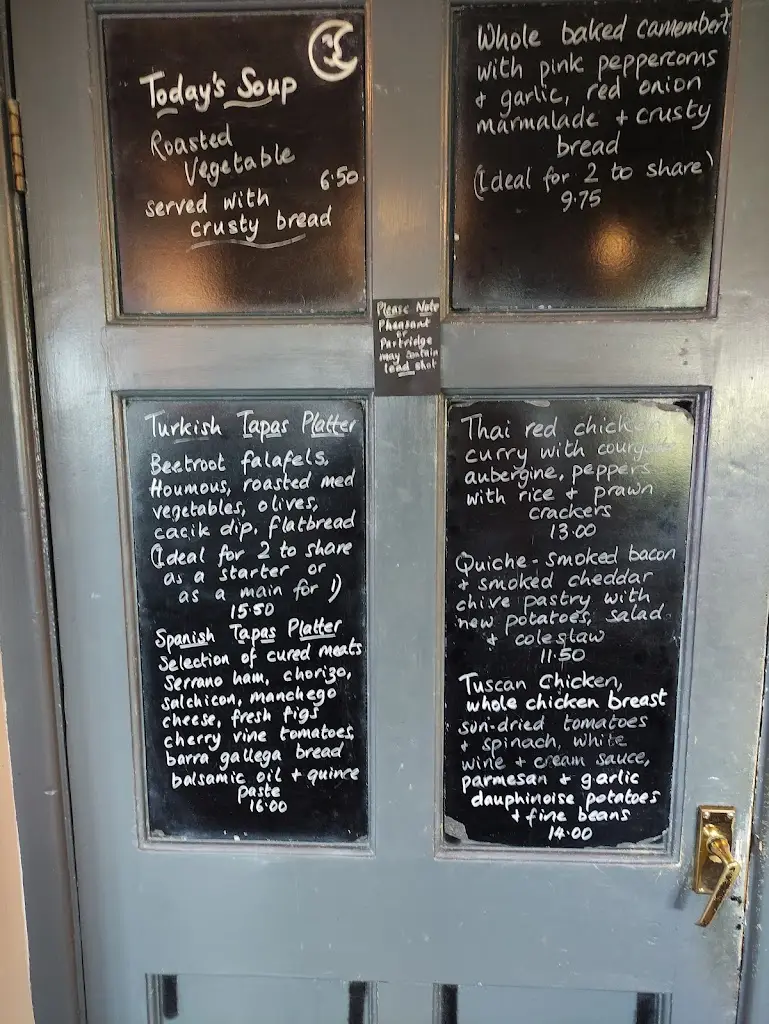 Today's Soup
Roasted
Vegetable
6.50
served with
crusty bread
Whole baked camembert
with pink peppercorns
+ garlic, red onion
marmalade + crusty
bread
(Ideal for 2 to share)
9.75
Please Note
Pheasant
or
Partridge
may contain
lead shot
Turkish Tapas Platter
Beetroot falafels,
Houmous, roasted med
vegetables, olives,
cacik dip, flatbread
(Ideal for 2 to share
as a starter or
as a main for 1)
15.50
Spanish Tapas Platter
Selection of cured meats
Serrano ham, chorizo,
salchicon, manchego
cheese, fresh figs
cherry vine tomatoes,
barra gallega bread
balsamic oil + quince
paste
16.00
Thai red chick
curry with
aubergine, peppers
with rice + prawn
crackers
13.00
Quiche - smoked bacon
+ smoked cheddar
chive pastry with
new potatoes, salad
+ coleslaw
11.50
Tuscan Chicken,
whole chicken breast
sun-dried tomatoes
+ spinach, white
wine + cream sauce,
parmesan + garlic
dauphinoise potatoes
+ fine beans
14.00